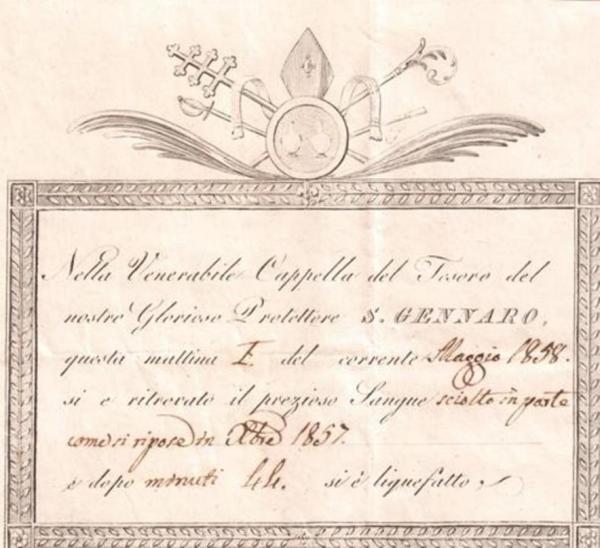 Nella Venerabile Cappella del Tesoro del
nostro Glorioso Protettore S. GENNARO,
questa mattina I. del corrente Maggio 1858.
si è ritrovato il prezioso Sangue sciolto in parte
come si ripose in Xbre 1857.
e dopo minuti 44. si è liquefatto